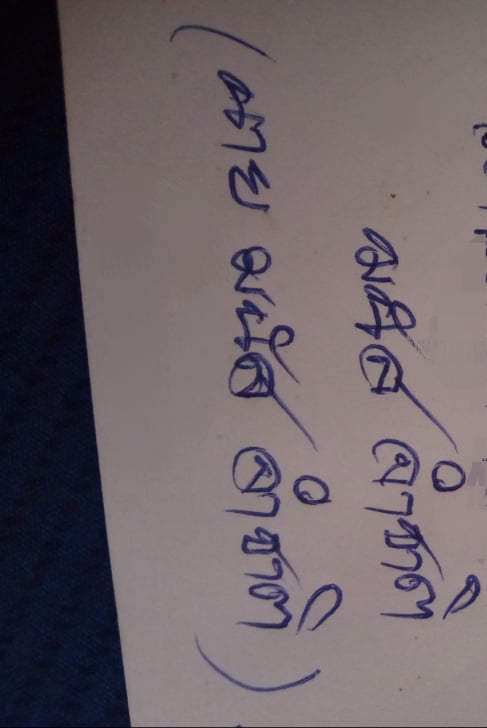 มนัส จำชาติ
(นาย มนัส จำชาติ)